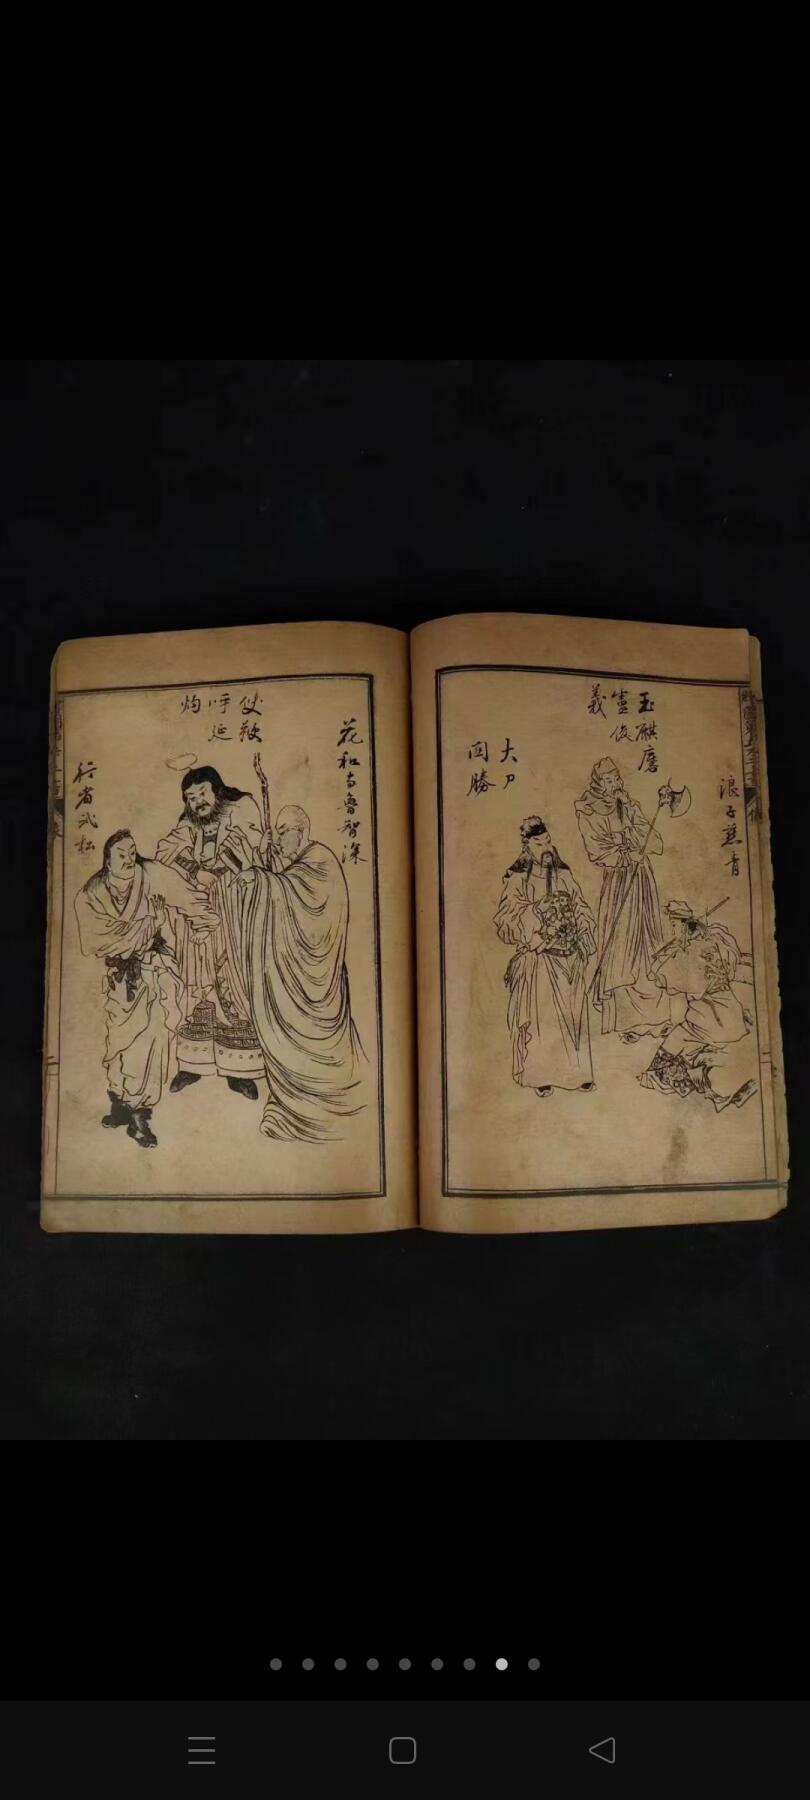 玉麒麐
盧俊
義
浪子燕青
大刀
関勝
花和尚魯智深
使鞭
呼延
灼
行者武松